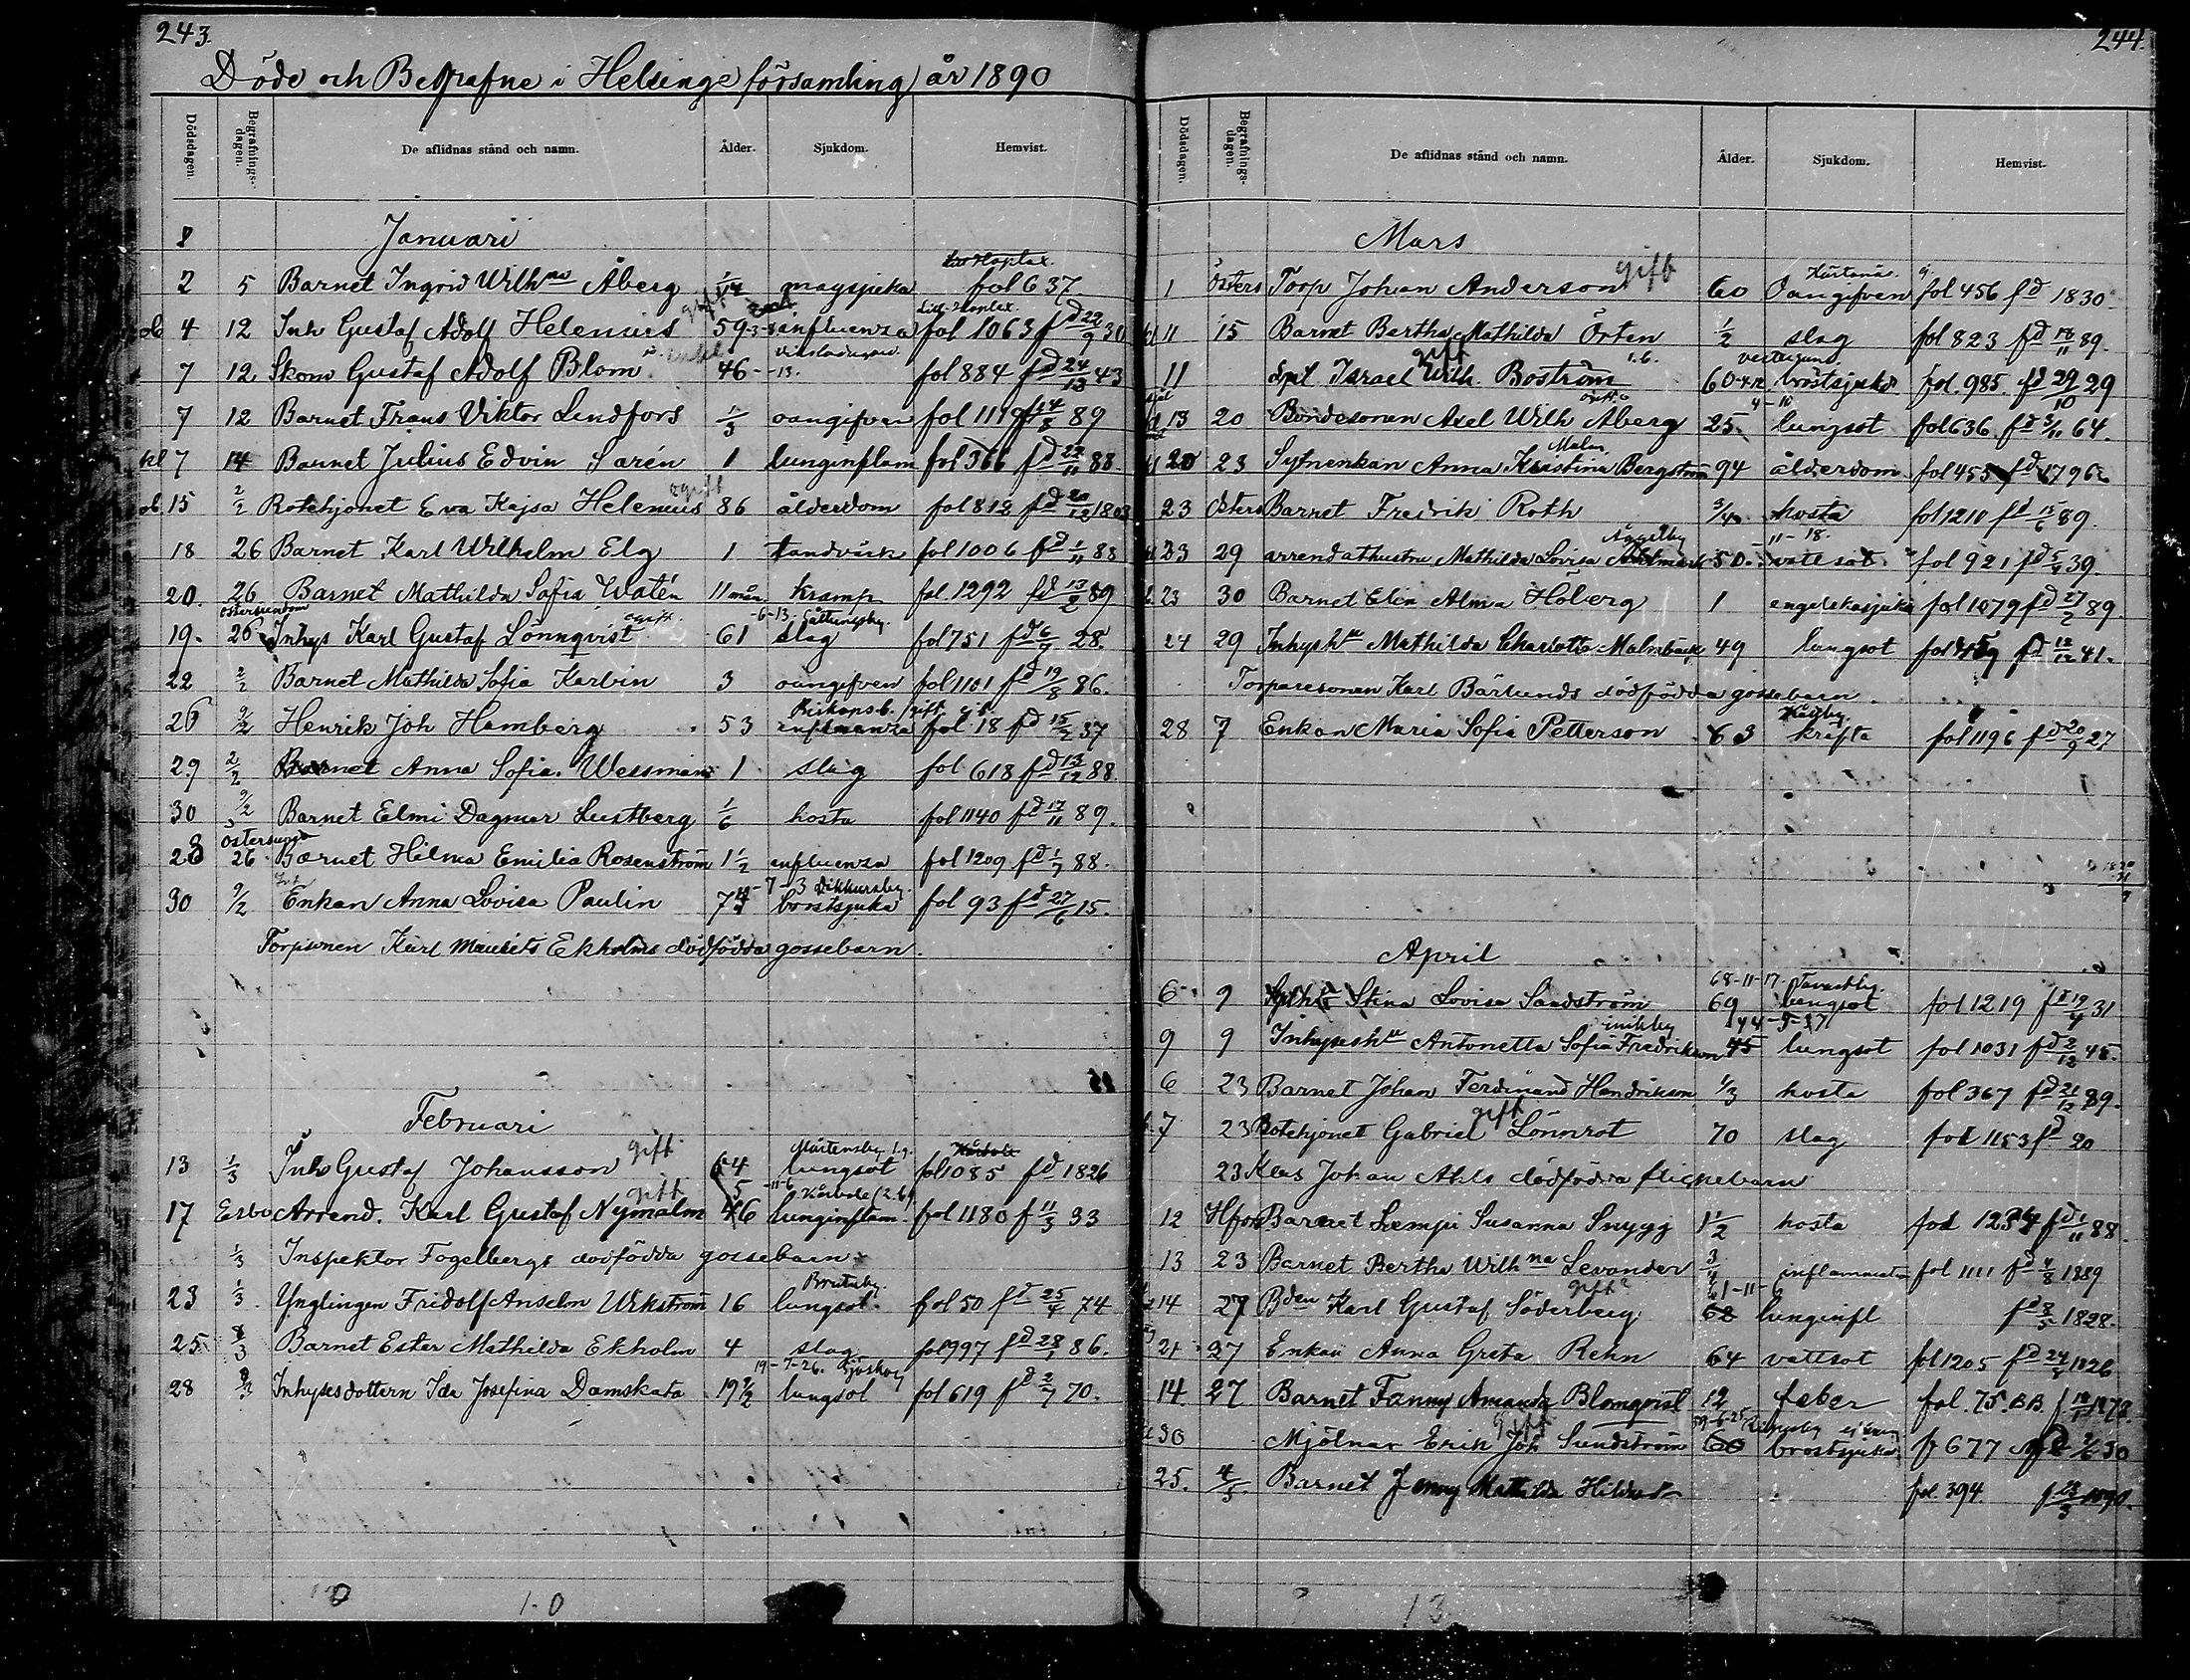 243.
Döde och Begrafne i Helsinge församling år 1890
Dödsdagen. Begrafnings-dagen. De aflidnas stånd och namn. Ålder. Sjukdom. Hemvist.
8 Januari
2 5 Barnet Ingrid Wilhna Åberg magsjuka fol 637
4 12 Inh Gustaf Adolf Helenius 59 influenza fol 1063 fd 22/9 30
7 12 Skom Gustaf Adolf Blom 46 - 13. fol 884 fd 24/12 43
7 12 Barnet Frans Viktor Lindfors 1/3 oangifven fol 1119 fd 14/8 89
kl 7 14 Barnet Julius Edvin Sarén 1 lunginflam fol 366 fd 22/11 88
15 2/2 Rotehjonet Eva Kajsa Helenius ogift 86 ålderdom fol 812 fd 20/12 1803
18 26 Barnet Karl Wilhelm Elg 1 tandvärk fol 1006 fd 1/11 88
20. 26 Barnet Mathilda Sofia Watén 11 mån kramp fol. 1292 fd 13/2 89
19. 26 Östersundom Inhys Karl Gustaf Lönnqvist 61 -6-13. slag fol 751 fd 6/7 28.
22 2/2 Barnet Mathilda Sofia Karvin 3 oangifven fol 1101 fd 19/8 86.
26 9/2 Henrik Joh Hamberg 53 Biskops b. influenza fol 18 fd 15/2 37
29 2/2 Barnet Anna Sofia Wessman 1 slag fol 618 fd 13/12 88.
30 9/2 Barnet Elmi Dagmar Lustberg 1/6 hosta fol 1140 fd 17/11 89.
28 26 Barnet Hilma Emilia Rosenström 1 1/2 influenza fol 1209 fd 1/7 88.
30 9/2 Enkan Anna Lovisa Paulin 74 -7-3 Dikkursby. bröstsjuka fol 93 fd 27/6 15.
Torpsonen Karl Maurits Ekholms dödfödda gossebarn.
Februari
13 1/3 Inhs Gustaf Johansson gift 64 Mårtensby lungsot fol 1085 fd 1826
17 Esbo Arrend. Karl Gustaf Nymalm gift 56 -11-6 lunginflam. fol 1180 f 11/3 33
1/3 Inspektor Fogelbergs dödfödda gossebarn
23 1/3. Ynglingen Fridolf Anselm Wikström 16 lungsot. fol 50 fd 25/4 74
25. 2/3 Barnet Ester Mathilda Ekholm 4 slag fol 997 fd 28/1 86.
28 Inhysesdottern Ida Josefina Damskata 19 1/2 19-7-26. lungsot fol 619 fd 2/7 70.
1-0
244.
Dödsdagen. Begrafnings-dagen. De aflidnas stånd och namn. Ålder. Sjukdom. Hemvist.
Mars
1 Östers Torp Johan Anderson gift 60 Oangifven fol 456 fd 1830.
11 15 Barnet Bertha Mathilda Örten 1/2 slag fol 823 fd 18/11 89.
11 Spl Israel Wilh. Boström gift 60-4-12 bröstsjuka fol. 985. fd 29/10 29
13 20 Bondesonen Axel Wilh Åberg 25. 4-10 lungsot fol 636 fd 3/11 64.
20 23 Sytnenkan Anna Kristina Bergström Malm 94 ålderdom fol 455 fd 1796
23 Östers Barnet Fredrik Roth 3/4 hosta fol 1210 fd 15/6 89.
23 29 arrendathustru Mathilda Lovisa Åggelby 50. -11-18. vattsot fol 921 fd 5/4 39.
23 30 Barnet Elin Alma Höberg 1 engelskasjuka fol 1079 fd 27/2 89.
24 29 Inhysh Mathilda Charlotta Malmbäck 49 lungsot fd 12/12 41.
Torparesonen Karl Bärlunds dödfödda gossebarn.
28 7 Enkan Maria Sofia Petterson 63 kräfta fol 1196 fd 20/9 27
April
6 9 Stina Lovisa Sandström 69 68-11-17 Tavastby. lungsot fol 1219 fd 19/4 31
9 9 Inhyseshu Antonetta Sofia Fredrikson 45 lungsot fol 1031 fd 2/12 45.
6 23 Barnet Johan Ferdinand Hendrikson 1/3 hosta fol 367 fd 21/12 89.
7 23 Rotehjonet Gabriel Lönnrot gift 70 slag fol 1153 fd 20
23 Klas Johan Ahls dödfödda flickebarn
12 Hfors Barnet Lempi Susanna Snygg 1 1/2 hosta fol 1234 fd 1/11 88.
13 23 Barnet Bertha Wilhna Levander inflammation fol 1111 fd 4/8 1889
14 27 Bden Karl Gustaf Söderberg gift? 62 61-11-6 lunginfl fd 8/5 1828.
21 27 Enkan Anna Greta Rehn 64 vattsot fol 1205 fd 24/4 1826
14. 27 Barnet Fanny Amanda Blomqvist 12 feber fol. 75. BB. f 1878.
30 Mjölnar Erik Joh Sundström gift 60 bröstsjuka f 677 30
25. 4/5. Barnet Jenny Mathilda fol. 394. f 23/3 1890.
13